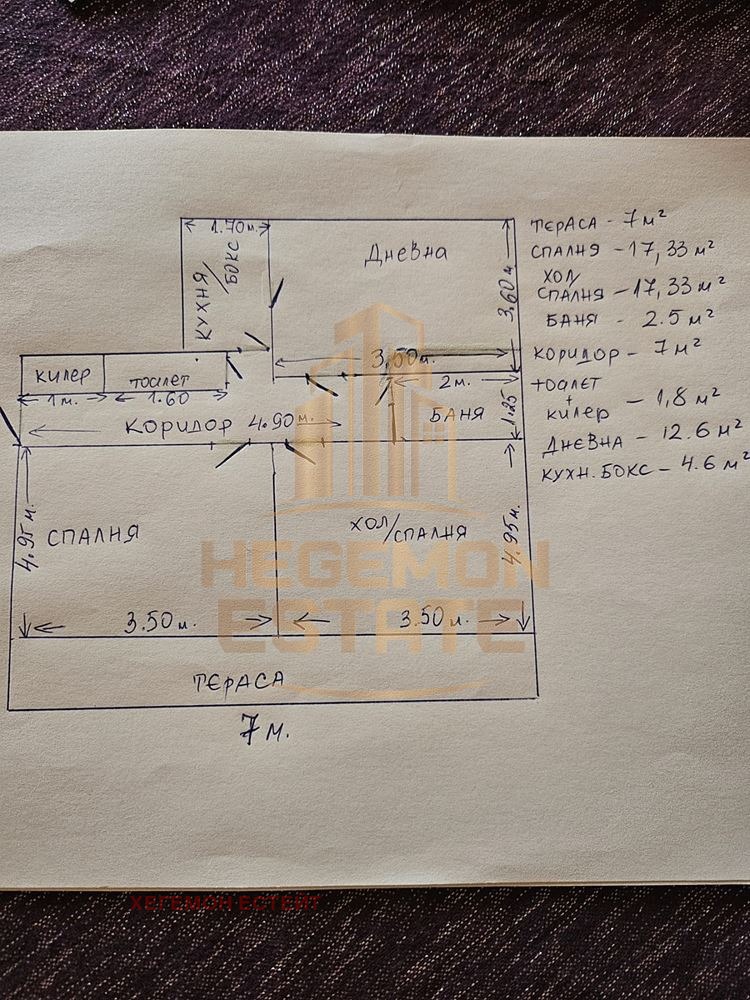 1.70м.
КУХНЯ/БОКС
ДНЕВНА
3.60м
3,50м.
КИЛЕР
ТОАЛЕТ
1м.
1.60
2м.
1.25
КОРИДОР 4.90м.
БАНЯ
4.95м.
СПАЛНЯ
ХОЛ/СПАЛНЯ
4.95м.
3.50м.
3.50м.
ТЕРАСА
7м.
ТЕРАСА - 7м²
СПАЛНЯ - 17,33м²
ХОЛ/
СПАЛНЯ - 17,33м²
БАНЯ - 2.5м²
КОРИДОР - 7м²
ТОАЛЕТ
+
КИЛЕР - 1,8м²
ДНЕВНА - 12.6м²
КУХН. БОКС - 4.6м²
HEGEMON
ESTATE
ХЕГЕМОН ЕСТЕЙТ